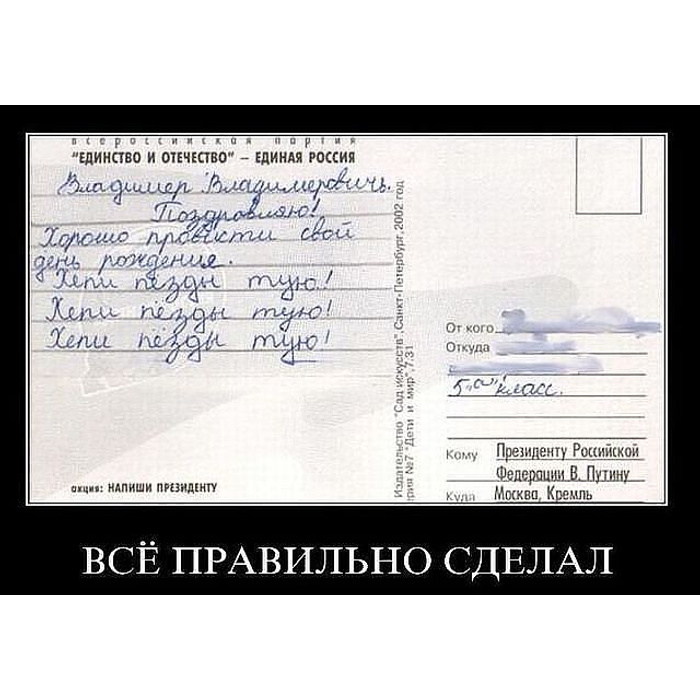 всероссийская партия
"ЕДИНСТВО И ОТЕЧЕСТВО" – ЕДИНАЯ РОССИЯ
Владимер Владимеровичь.
Поздровляю!
Хорошо провисти свой
день рождения.
Хепи пёзды тую!
Хепи пёзды тую!
Хепи пёзды тую!
акция: НАПИШИ ПРЕЗИДЕНТУ
Издательство "Сад искусств", Санкт-Петербург, 2002 год
рия №7 "Дети и мир", 7.31
От кого
Откуда
5 "а" класс.
Кому Президенту Российской
Федерации В. Путину
Куда Москва, Кремль
ВСЁ ПРАВИЛЬНО СДЕЛАЛ